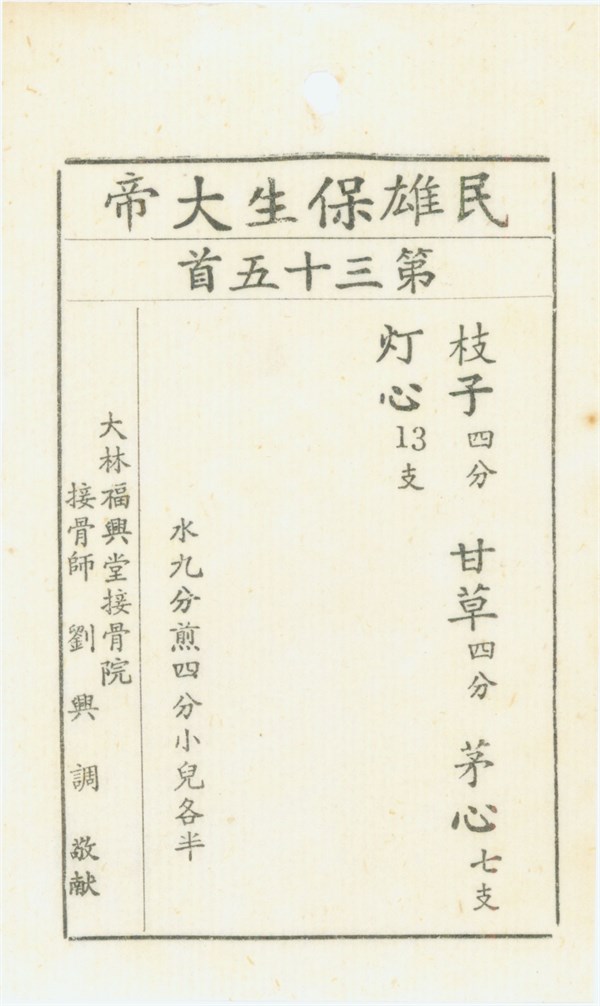 民雄保生大帝
第三十五首
枝子四分 甘草四分 茅心七支
灯心13支
水九分煎四分小兒各半
大林福興堂接骨院
接骨師 劉興調 敬献